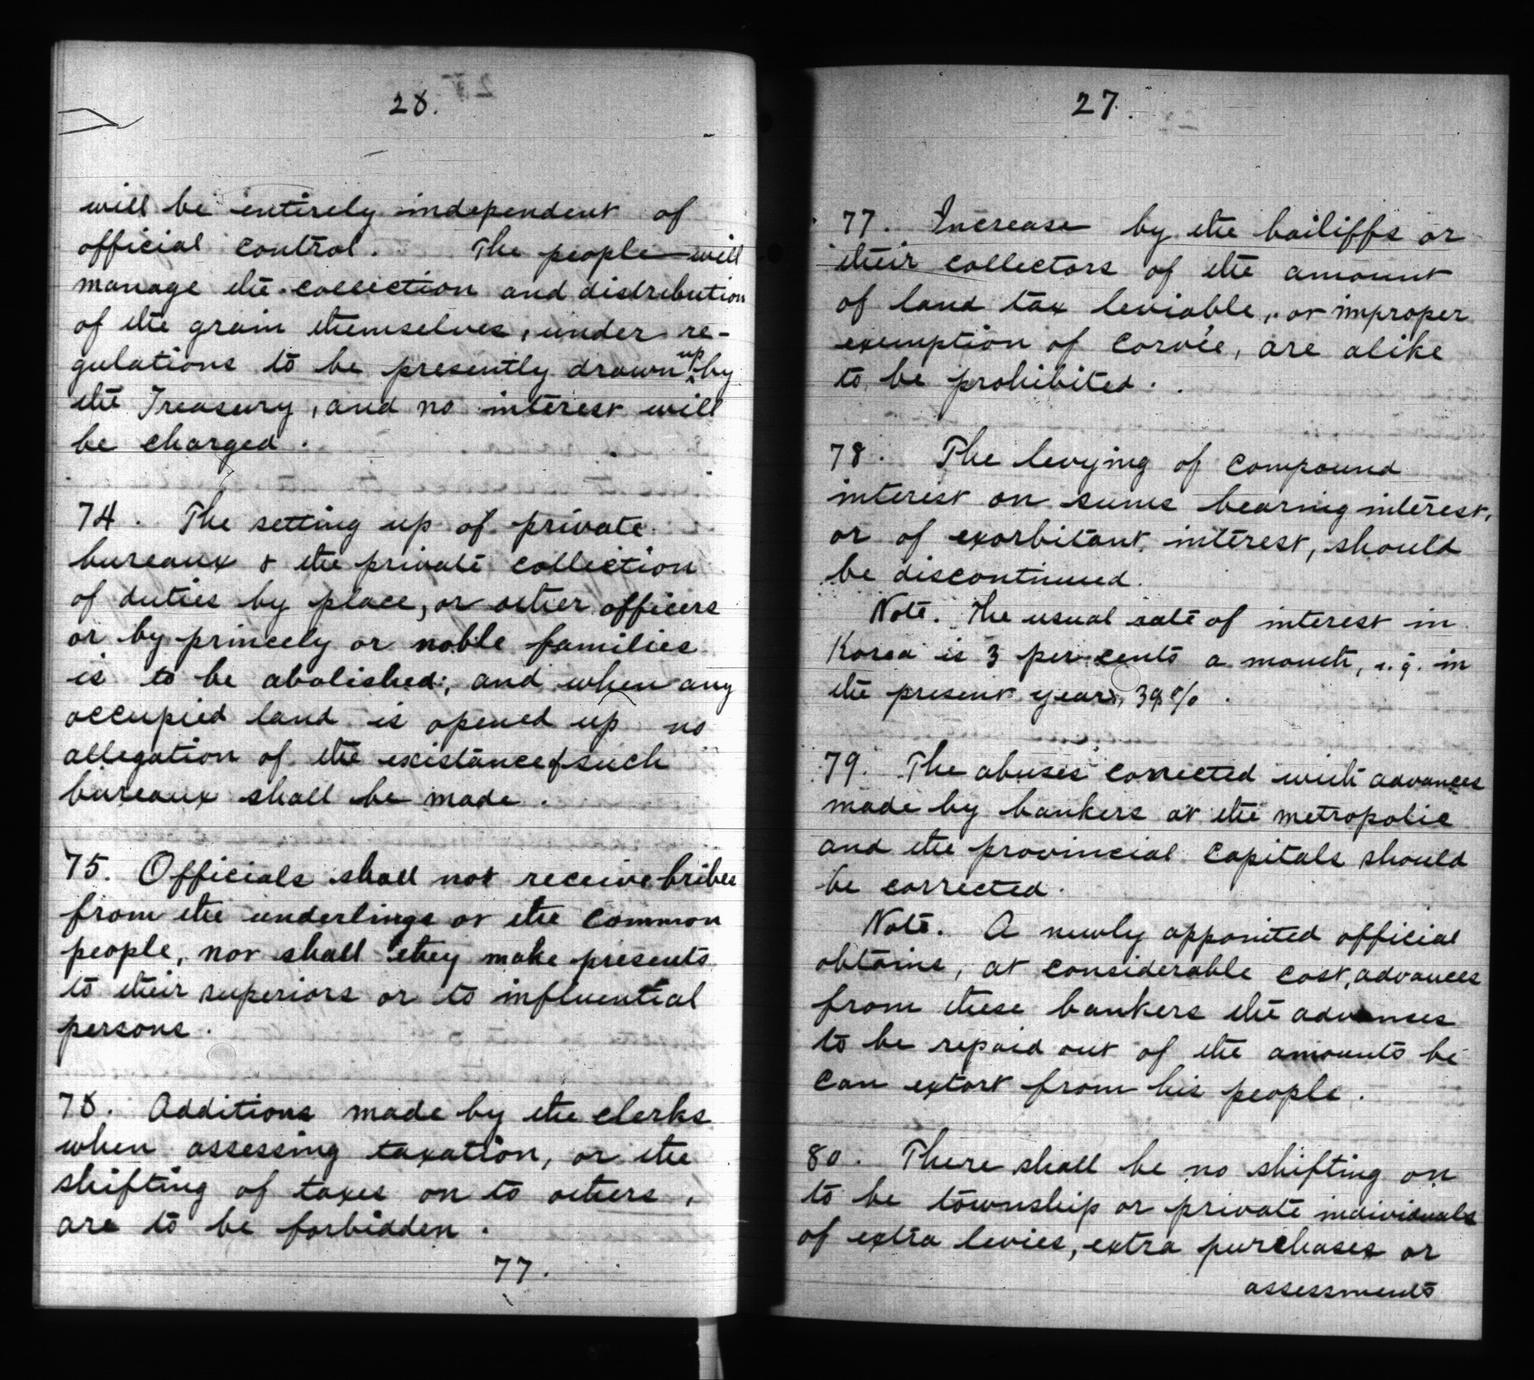 26.
will be entirely independent of
official control. The people will
manage the collection and distribution
of the grain themselves, under re-
gulations to be presently drawn up by
the Treasury, and no interest will
be charged.
74. The setting up of private
bureaux & the private collection
of duties by place, or other officers
or by princely or noble families
is to be abolished; and when any
occupied land is opened up no
allegation of the existance of such
bureaux shall be made.
75. Officials shall not receive bribes
from the underlings or the common
people, nor shall they make presents
to their superiors or to influential
persons.
76. Additions made by the clerks
when assessing taxation, or the
shifting of taxes on to others,
are to be forbidden.
77.
27.
77. Increase by the bailiffs or
their collectors of the amount
of land tax leviable, or improper
exemption of corvée, are alike
to be prohibited.
78. The levying of compound
interest on sums bearing interest,
or of exorbitant interest, should
be discontinued.
Note. The usual rate of interest in
Korea is 3 per cents a month, i.g. in
the present year, 39%.
79. The abuses connected with advances
made by bankers at the metropolis
and the provincial capitals should
be corrected.
Note. A newly appointed official
obtains, at considerable cost, advances
from these bankers the advances
to be repaid out of the amounts he
can extort from his people.
80. There shall be no shifting on
to be township or private individuals
of extra levies, extra purchases or
assessments